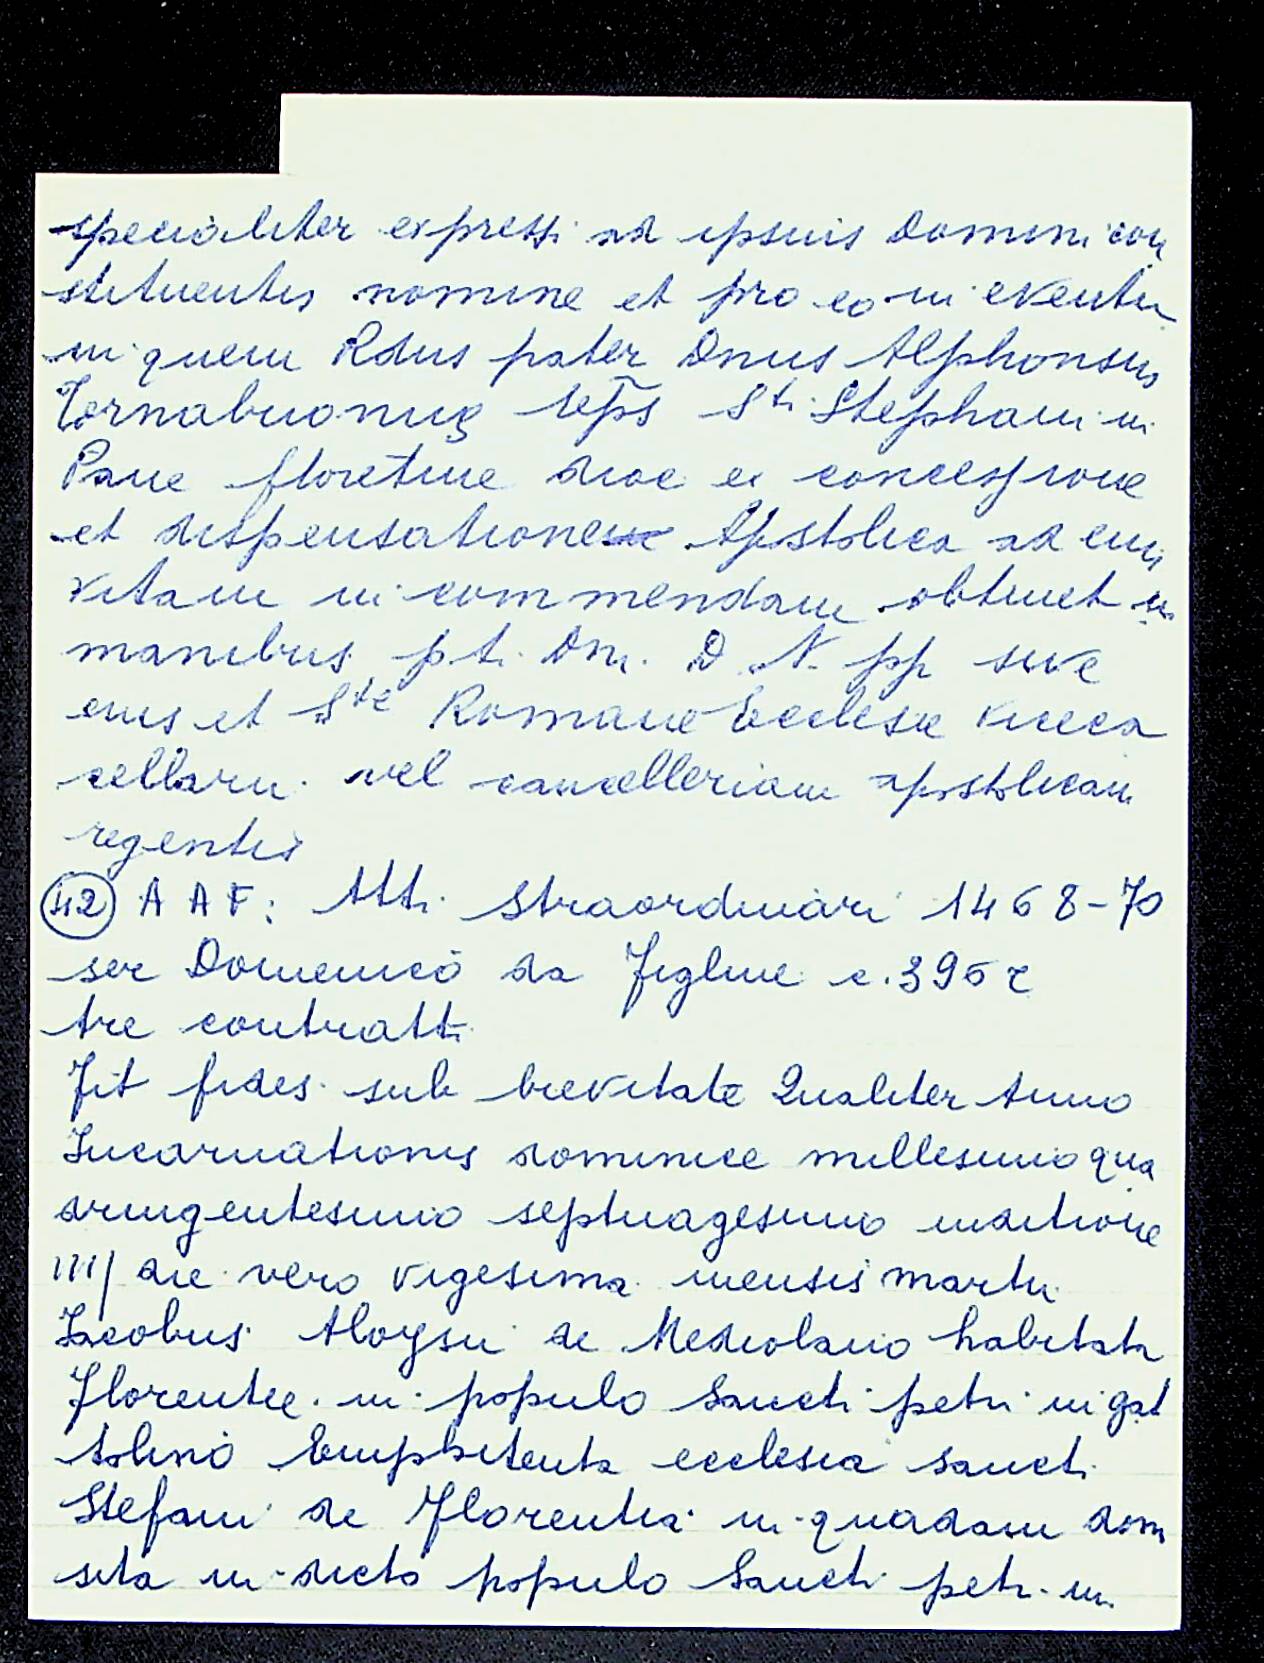 specialiter expressi ad ipsuis Domini con
stituentis nomine et pro eo in eventu
in quem Rdus pater Dnus Alphonsus
Tornabuonus Sti Stephani in
Pane floretine dioc ei concessione
et dispensatione Apostolica ad eius
vitam in commendam obtinet in
manibus pti Dni D N pp sive
eius et Ste Romane Ecclesie vicecan
cellarii vel cancelleriam apostolicam
regentis
42 A A F: Atti Straordinari 1468-70
ser Domenico da Figline c. 395 r
tre contratti
Fit fides sub brevitate Qualiter Anno
Incarnationis dominice millesimo qua
dringentesimo septuagesimo inditione
IIII die vero vigesima mensis martii
Iacobus Aloysii de Mediolano habitat
Florentie in populo Sancti petri in gat
tolino Emphiteuta ecclesia sancti
Stefani de Florentia in quadam dom
sita in dicto populo Sancti petri in